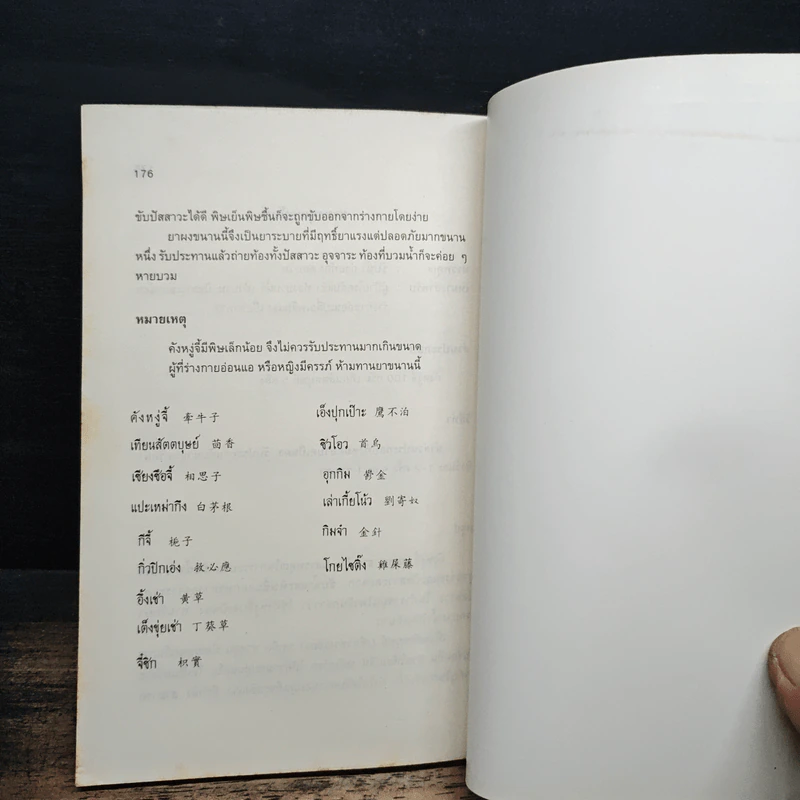 176
ขับปัสสาวะได้ดี พิษเย็นพิษชื้นก็จะถูกขับออกจากร่างกายโดยง่าย
ยาผงขนานนี้จึงเป็นยาระบายที่มีฤทธิ์ยาแรงแต่ปลอดภัยมากขนาน
หนึ่ง รับประทานแล้วถ่ายท้องทั้งปัสสาวะ อุจจาระ ท้องที่บวมน้ำก็จะค่อย ๆ
หายบวม
หมายเหตุ
คังหงู่จี้มีพิษเล็กน้อย จึงไม่ควรรับประทานมากเกินขนาด
ผู้ที่ร่างกายอ่อนแอ หรือหญิงมีครรภ์ ห้ามทานยาขนานนี้
คังหงู่จี้ 牽牛子 เอ็งปุกเป๊าะ 鷹不泊
เทียนสัตตบุษย์ 茴香 ชิวโอว 首烏
เซียงซือจี้ 相思子 อุกกิม 鬱金
แปะเหม่ากึง 白茅根 เล่าเกี้ยโน้ว 劉寄奴
กีจี้ 梔子 กิมจำ 金針
กิ่วปิกเอ่ง 救必應 โกยไซติ๊ง 雞屎藤
อึ้งเช่า 黃草
เต็งชุ่ยเช่า 丁葵草
จี๋ซิก 枳實